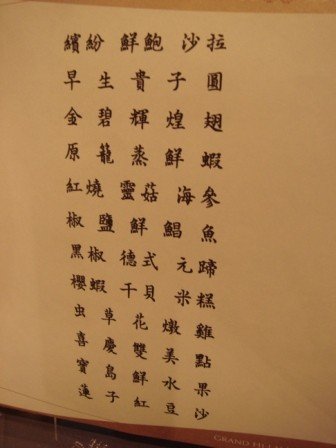 繽紛鮮鮑沙拉
早生貴子圓
金碧輝煌翅
原籠蒸鮮蝦
紅燒靈菇海參
椒鹽鮮鯧魚
黑椒德式元蹄
櫻蝦干貝米糕
虫草花燉雞
喜慶雙美點
寶島鮮水果
蓮子紅豆沙
GRAND